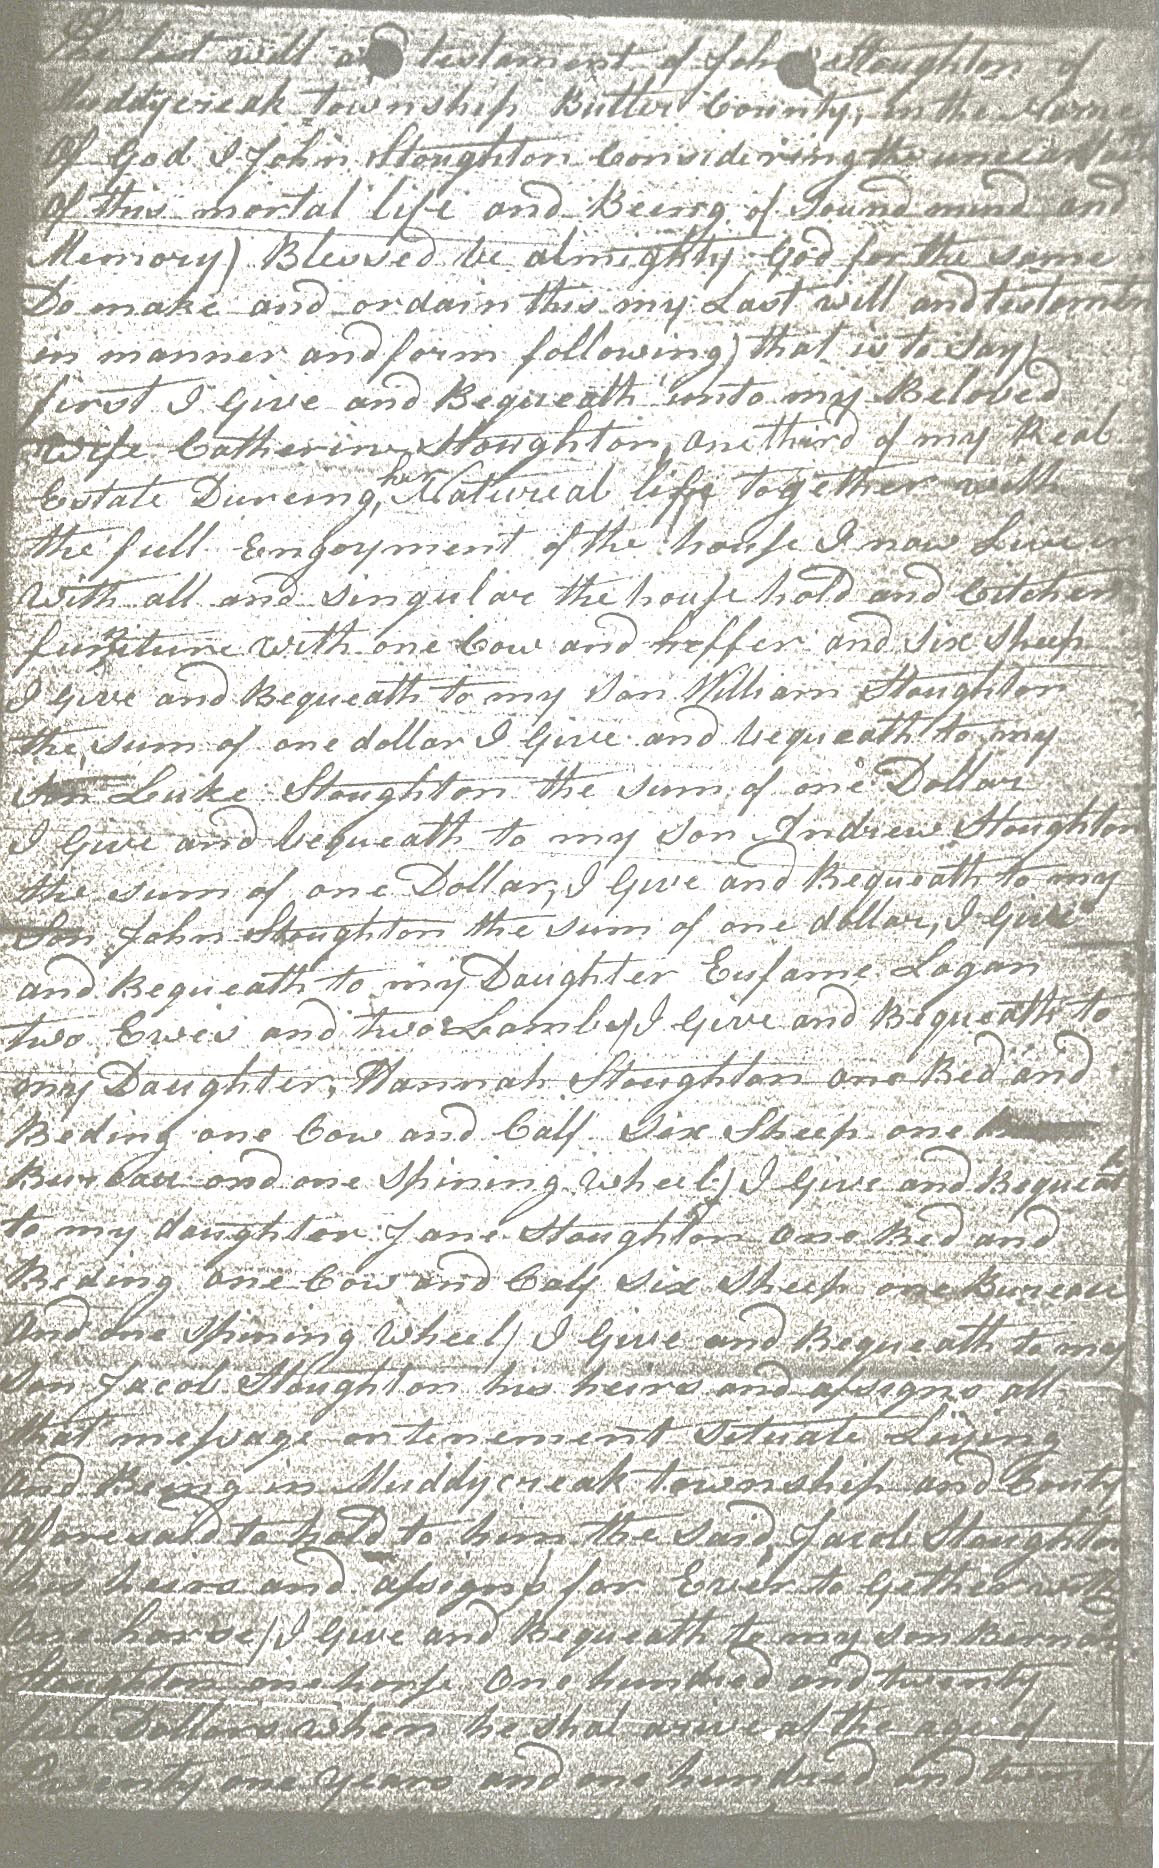 The last will and testament of John Stoughton of
Muddycreak township Butler County, in the Name
Of God I John Stoughton Considering the uncertainty
of this mortal life and Being of Sound mind and
Memory) Blessed be almighty God for the same
Do make and ordain this my Last will and testament
in manner and form following) that is to say)
first I Give and Bequeath unto my Beloved
Wife Catherine Stoughton, one third of my Real
Estate Dureing her Natureal life together with
the full Engoyment of the house I now Live in
With all and singular the house hold and Citchen
furniture with one Cow and heffer and Six Sheep
I Give and Bequeath to my son William Stoughton
the sum of one dollar I Give and bequeath to my
Son Luke Stoughton the sum of one Dollar
I Give and bequeath to my son Andrew Stoughton
the sum of one Dollar, I Give and Bequeath to my
Son John Stoughton the sum of one dollar, I Give
and Bequeath to my Daughter Eufame Logan
two Ewes and two Lambs) I Give and Bequeath to
my Daughter, Hannah Stoughton one Bed and
Beding one Cow and Calf Six Sheep one
Bureau and one Spining wheel) I Give and Bequeath
to my daughter Jane Stoughton one Bed and
Beding one Cow and Calf six Sheep one Bureau
And one Spining wheel) I Give and Bequeath to my
Son Jacob Stoughton his heirs and assigns all
that message or tenement Situate Lying
and Being in Muddycreak township and Couty
aforesaid to hold to him the said, Jacob Stoughton
his heirs and assigns) for Ever to Gether with
One horse) I Give and Bequeath to my son
Stoughton one horse One hundred and twenty
Dollars when he shal arive at the age of
Twenty one years and one hundred and